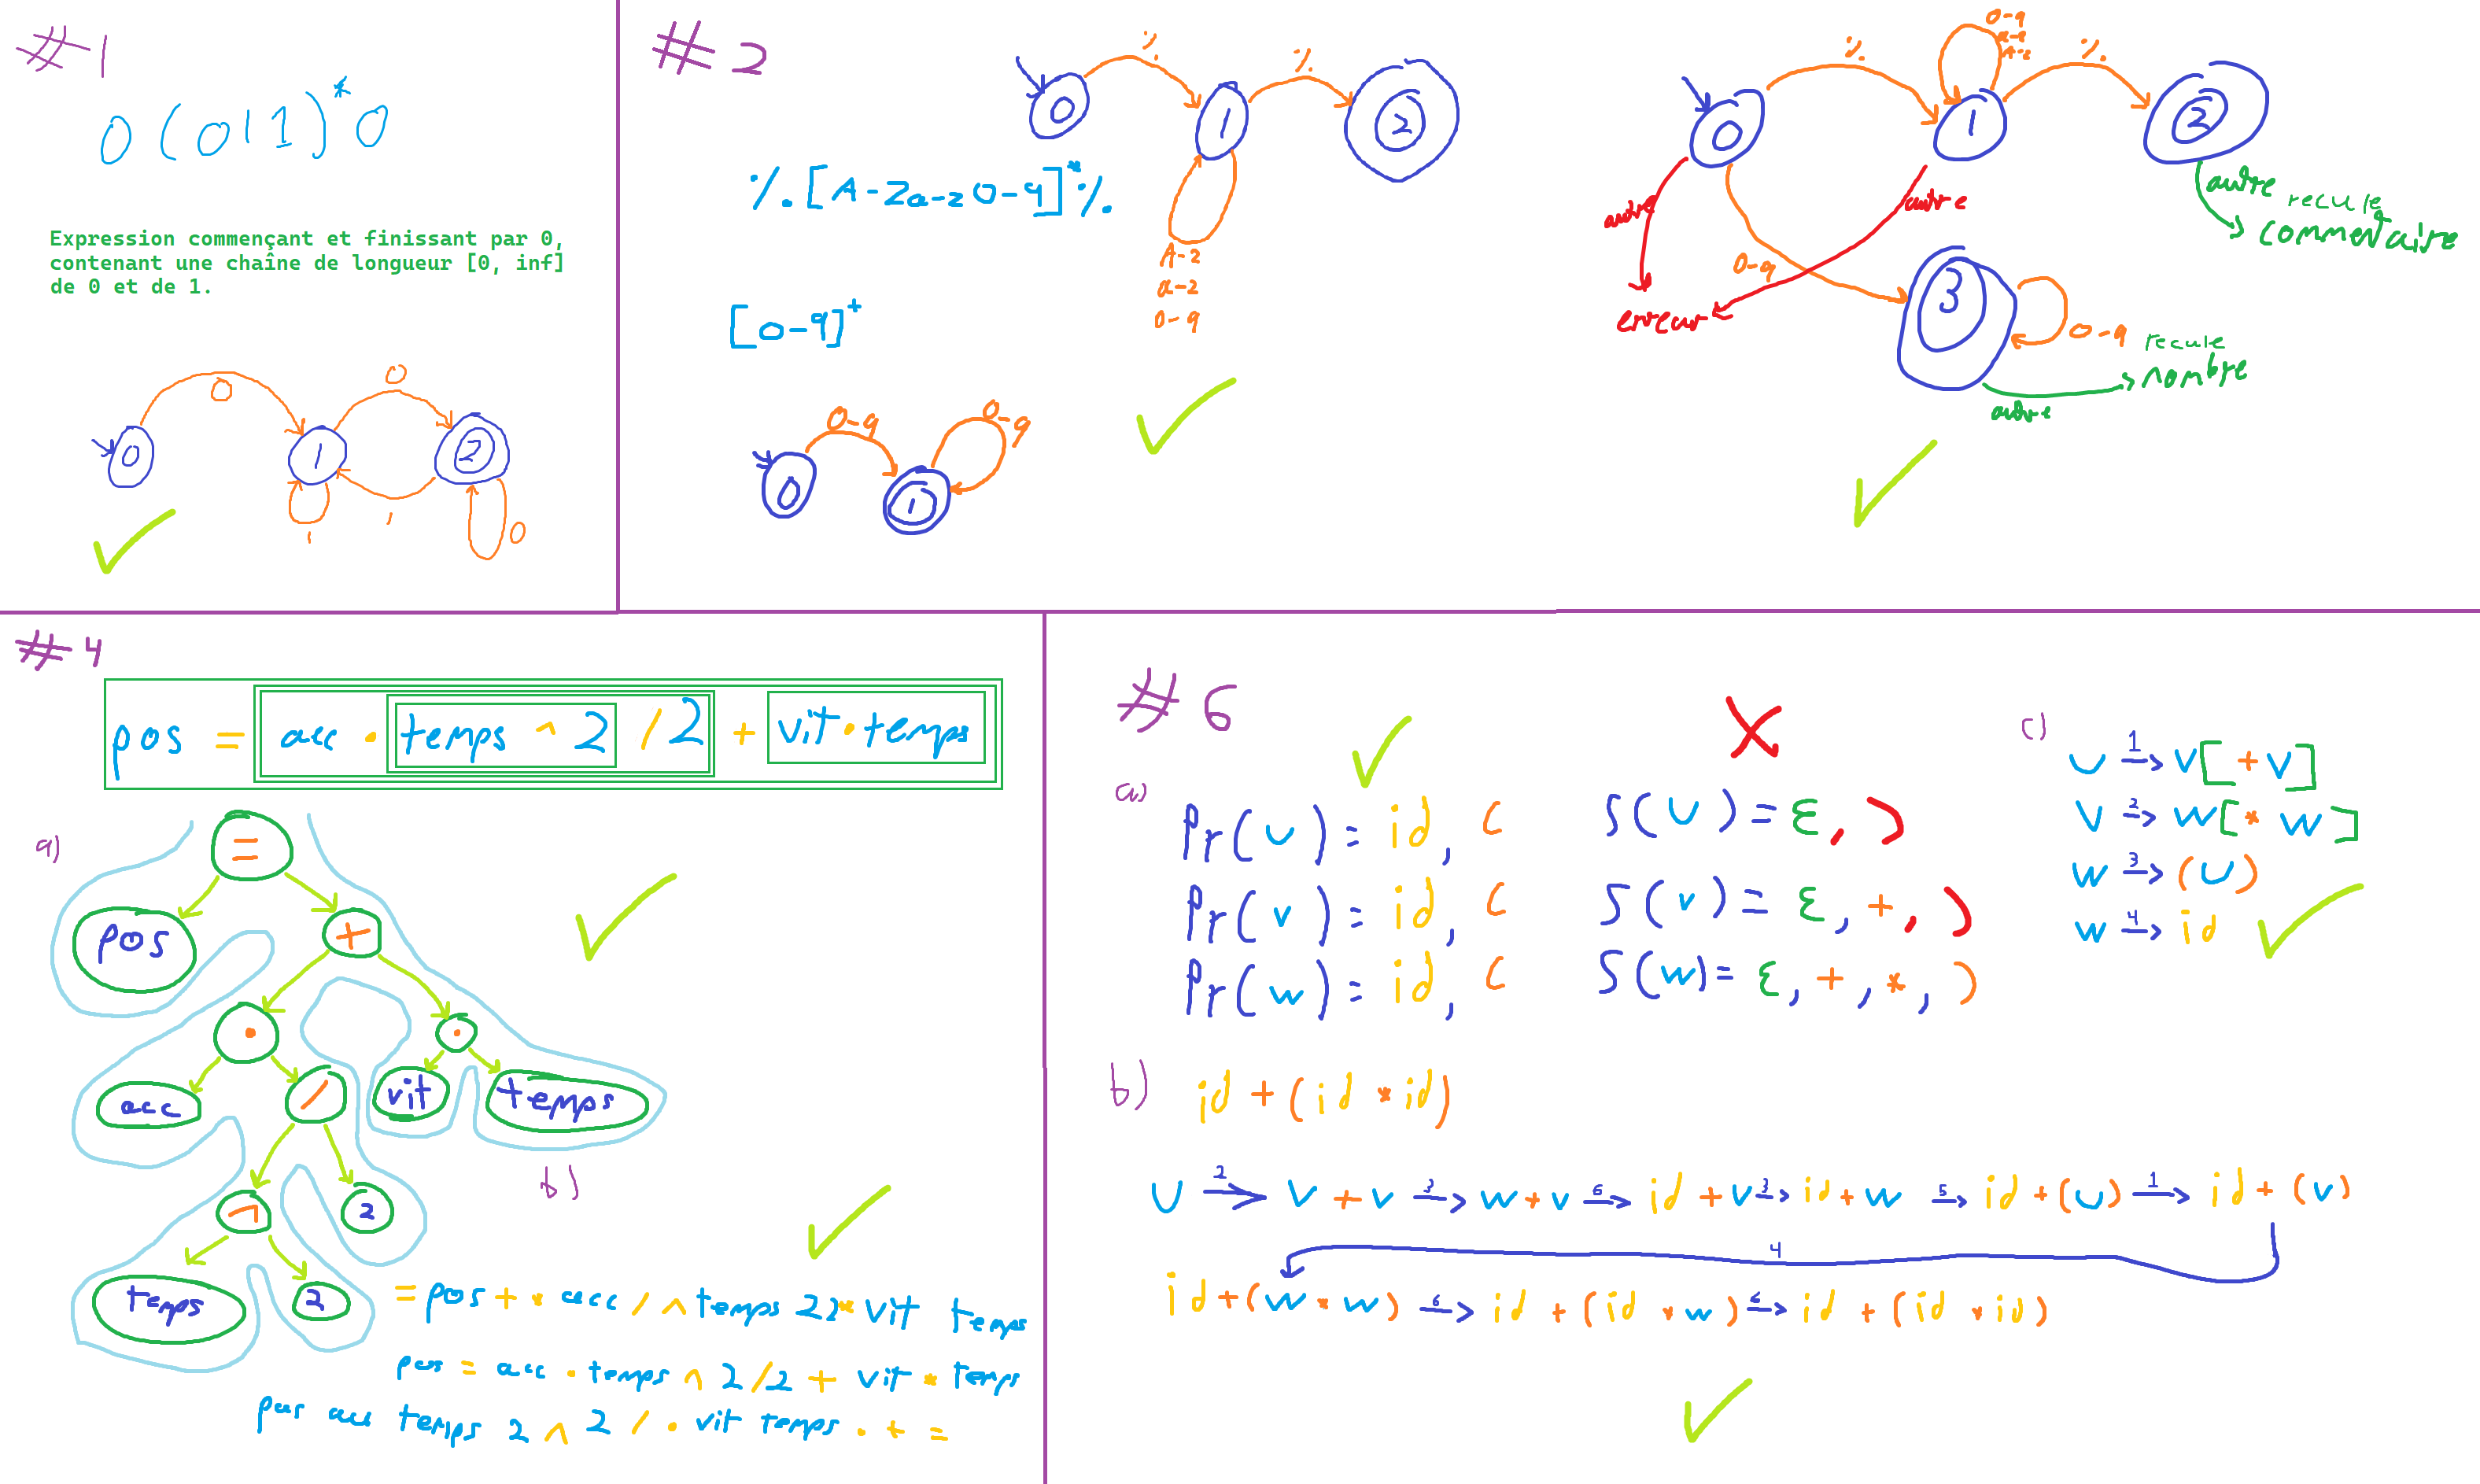 #1
0(0|1)*0
Expression commençant et finissant par 0,
contenant une chaîne de longueur [0, inf]
de 0 et de 1.
0
0
0
1
2
1
1
0
#2
%
%
0
1
2
%[A-Za-z0-9]*%
A-Z
a-z
0-9
[0-9]+
0-9
0-9
0
1
0-9
a-z
A-Z
%
%
0
1
2
autre
autre
autre recule
commentaire
0-9
erreur
3
0-9
recule
nombre
autre
#4
pos = acc · temps ^ 2 / 2 + vit · temps
a)
=
pos
+
·
·
acc
/
vit
temps
^
2
temps
2
b)
= pos + · acc / ^ temps 2 2 * vit temps
pos = acc · temps ^ 2 / 2 + vit * temps
pos acc temps 2 ^ 2 / · vit temps · + =
#6
a)
Pr(U) = id, (
S(U) = ε, )
Pr(V) = id, (
S(V) = ε, +, )
Pr(W) = id, (
S(W) = ε, +, *, )
c)
U 1→ V[+V]
V 2→ W[* W]
W 3→ (U)
W 4→ id
b)
id + (id * id)
U 2→ V + V 3→ W + V 6→ id + V 3→ id + W 5→ id + (U) 1→ id + (V)
4
id + (W * W) 6→ id + (id * W) 6→ id + (id * id)